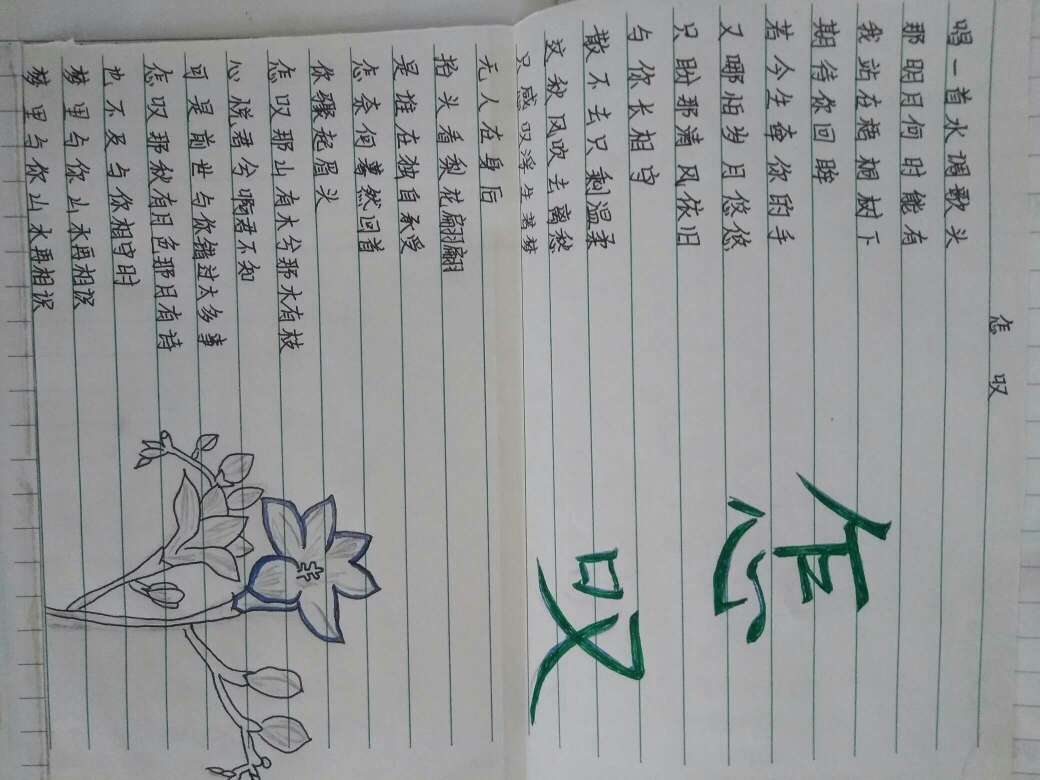 怎叹
唱一首水调歌头
那明月何时能有
我站在梧桐树下
期待你回眸
若今生牵你的手
又哪怕岁月悠悠
只盼那清风依旧
与你长相守
散不去只剩温柔
这秋风吹去离愁
只感叹浮生若梦
无人在身后
抬头看梨花翩翩
是谁在独自承受
怎奈何蓦然回首
你骤起眉头
怎叹那山有木兮那木有枝
心悦君兮啊君不知
可是前世与你错过太多事
怎叹那秋有月色那月有诗
也不及与你相守时
梦里与你山水再相识
梦里与你山水再相识
怎叹